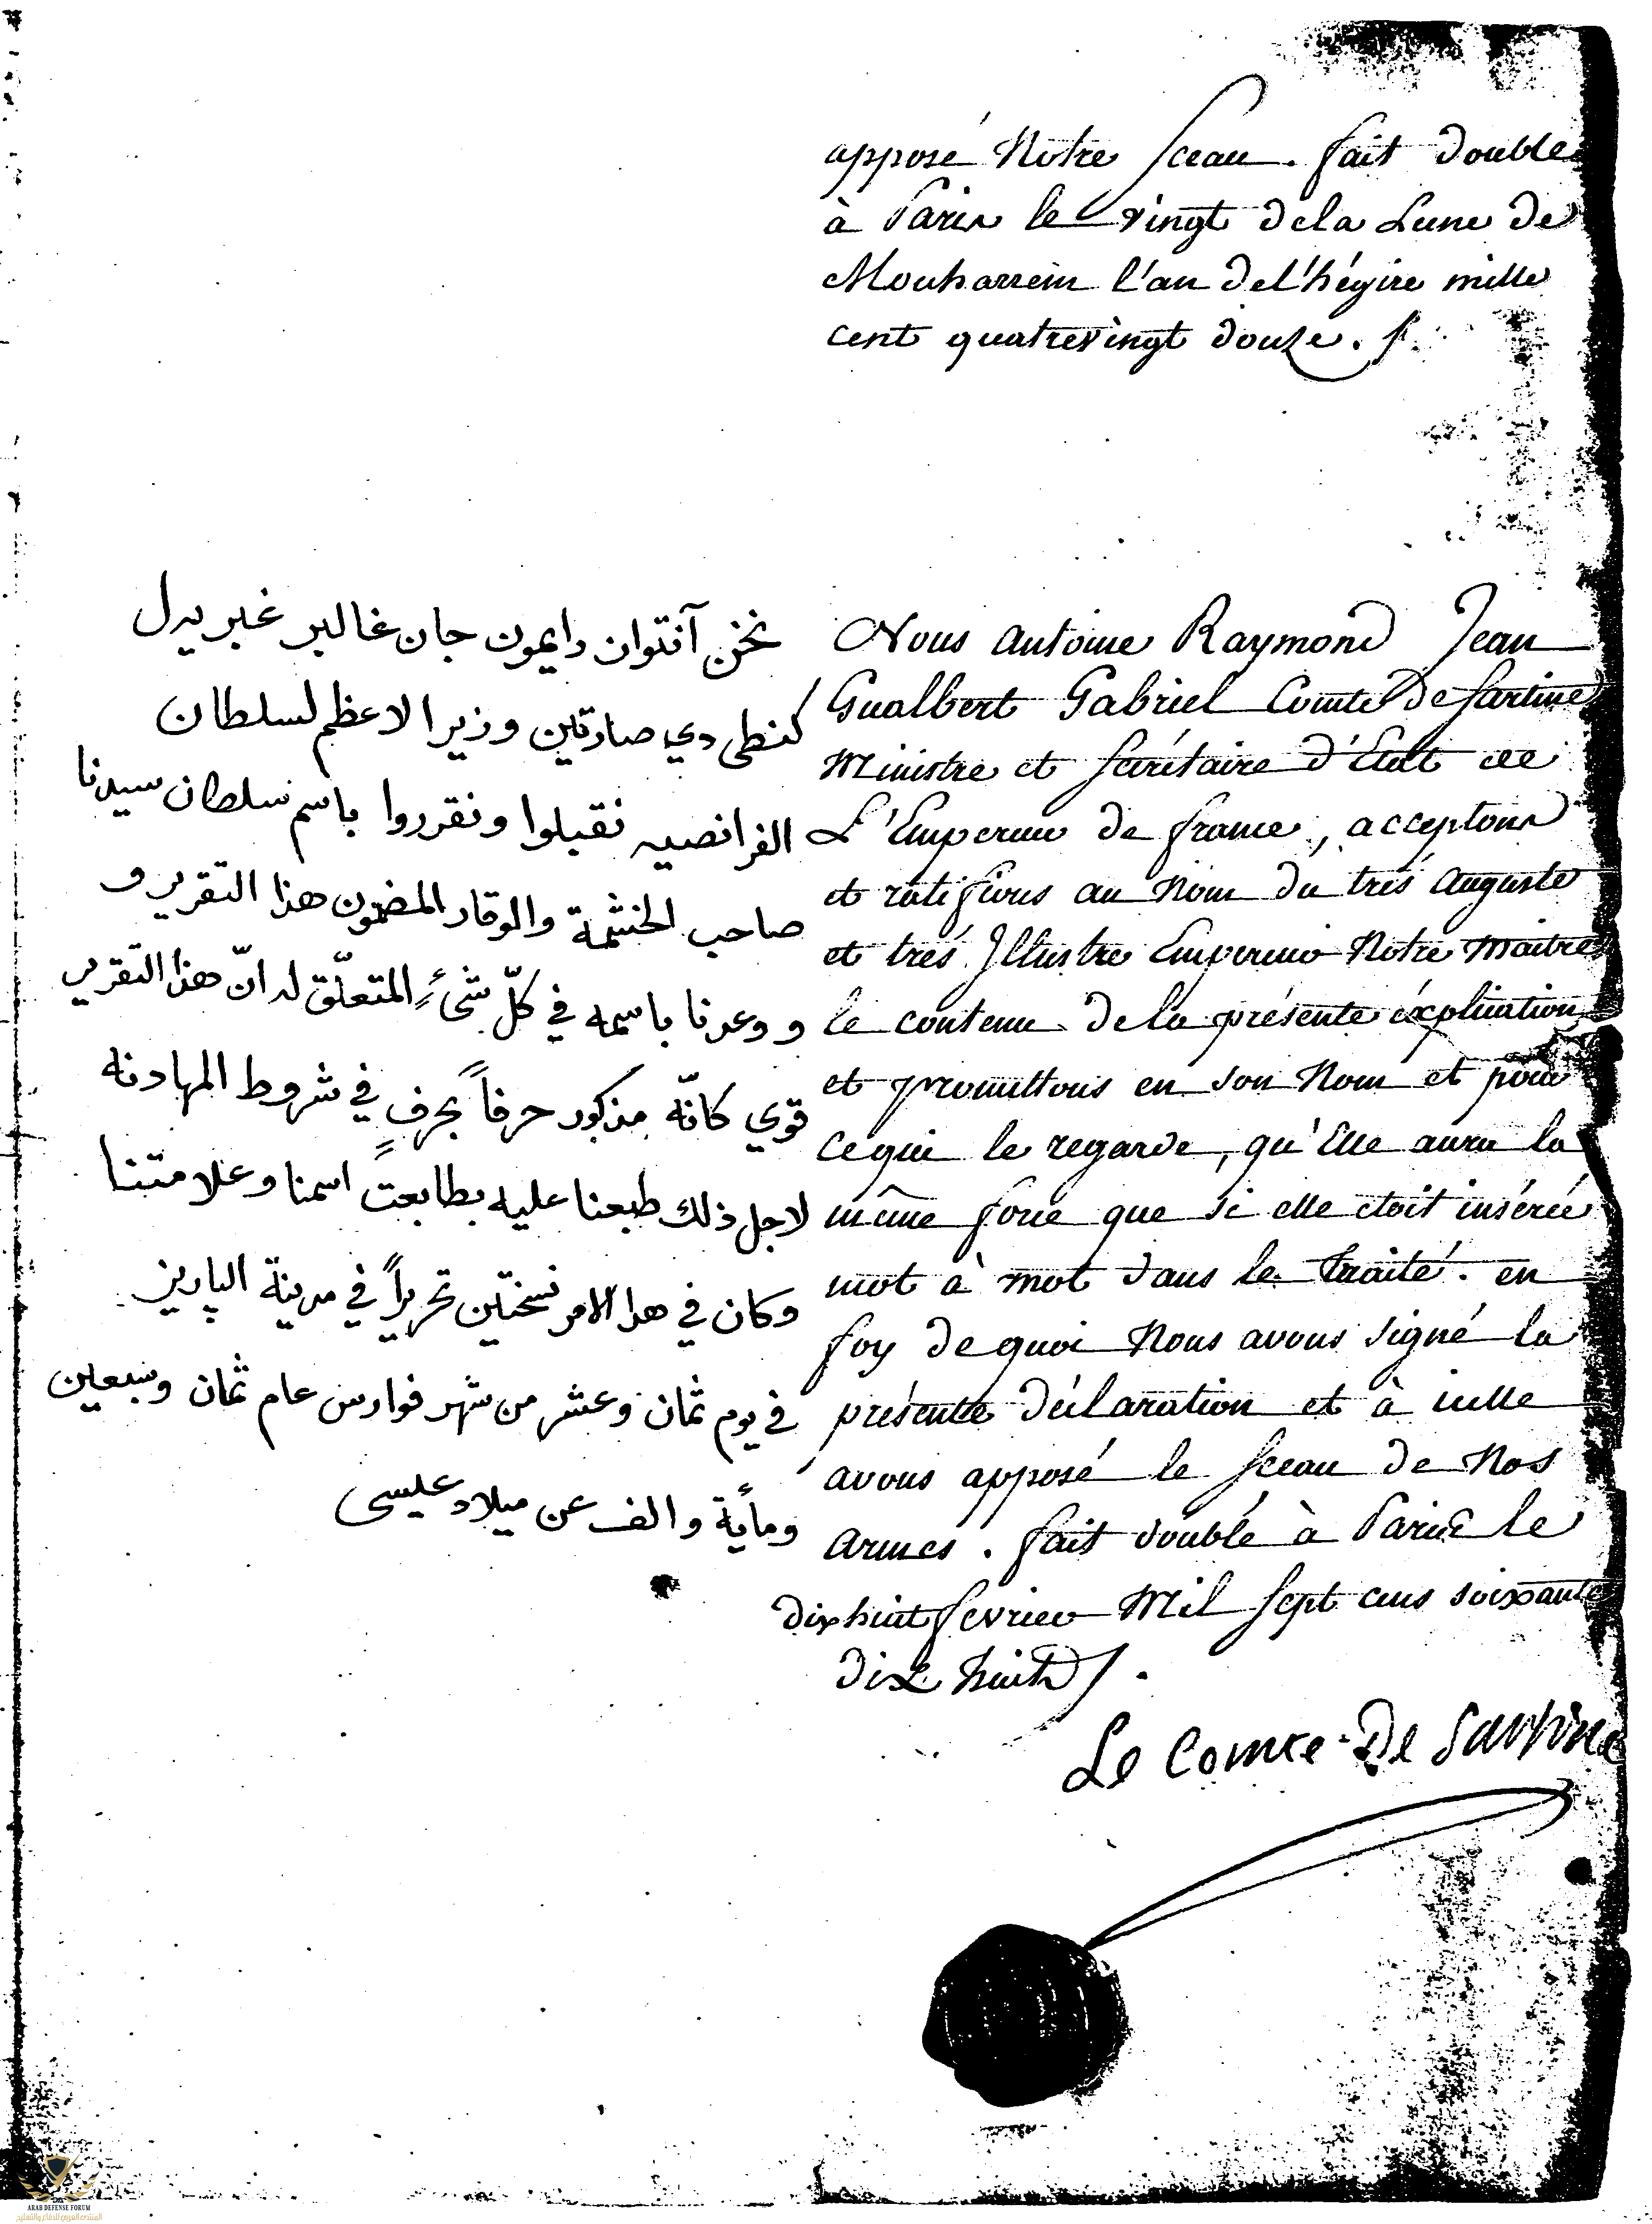 apposé Notre Sceau. fait double
à Paris le vingt dela Lune de
Mouharrem l'an del'hégire mille
cent quatrevingt douze.
Nous Antoine Raymond Jean
Gualbert Gabriel Comte De Sartine
Ministre et Secrétaire d'Etat de
L'Empereur de france, acceptons
et ratifions au Nom du trés Auguste
et trés Illustre Empereur Notre Maitre
le contenu dela présente éxplication
et promettons en son Nom et pour
cequi le regarde, qu'Elle aura la
même force que si elle etoit insérée
mot à mot dans le Traité. en
foy dequoi Nous avons signé la
présente déclaration et à icelle
avons apposé le Sceau de Nos
Armes. fait double à Paris le
dixhuit fevrier Mil Sept cens soixante
dix huit
Le Comte De Sartine
نحن آنتوان رايمون جان غالبر غبريل
كنطي دي صارتين وزير الاعظم لسلطان
الفرانصيه نقبلوا ونقرروا باسم سلطان سيدنا
صاحب الحشمة والوقار المضمون هذا التقرير و
ووعدنا باسمه في كلّ شئٍ المتعلّق له انّ هذا التقرير
قوي كانّه مذكور حرفاً بحرفٍ في شروط المهادنه
لاجل ذلك طبعنا عليه بطابعت اسمنا وعلامتنا
وكان في هذا الامر نسختين تحريراً في مدينة الپاريز
في يوم ثمان وعشر من شهر فوارس عام ثمان وسبعين
ومأية والف عن ميلاد عيسى
ARAB DEFENSE FORUM
المنتدى العربي للدفاع والتسليح